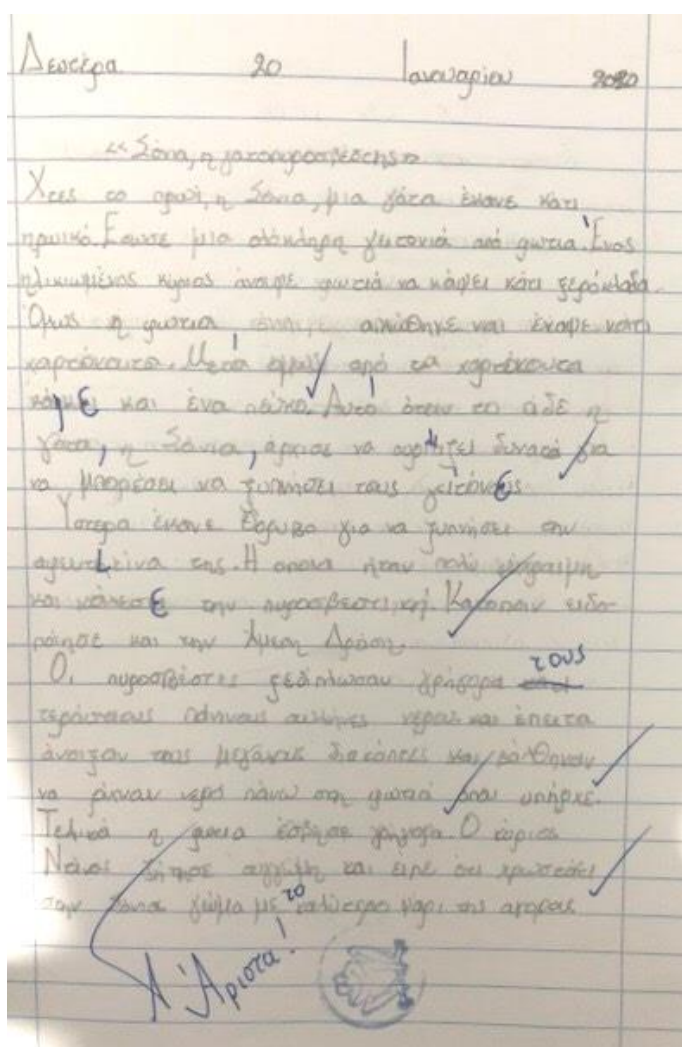 Δευτέρα 20 Ιανουαρίου 2020
«Σόνια, η γατοπυροσβέστης»
Χτες το πρωί, η Σόνια, μια γάτα έκανε κάτι
ηρωικό. Έσωσε μια ολόκληρη γειτονιά από φωτιά. Ένας
ηλικιωμένος κύριος άναψε φωτιά να κάψει κάτι ξερόκλαδα.
Όμως η φωτιά σηκώθηκε και έκαψε κάτι
χαρτόκουτα. Μετά από τα χαρτόκουτα
και ένα πεύκο. Αυτό όταν το είδε η
γάτα, η Σόνια, άρχισε να δυνατά για
να μπορέσει να ξυπνήσει τους γείτονες
Ύστερα έκανε θόρυβο για να ξυπνήσει την
της. Η οποια ήταν πολύ ψύχραιμη
και κάλεσε την πυροσβεστική. Κατόπιν ειδο-
ποίησε και την Άμεση Δράση.
Οι πυροσβέστες ξεδίπλωσαν γρήγορα τους
τεράστιους σωλήνες νερού και έπειτα
άνοιξαν τους μεγάλους διακόπτες και βάλθηκαν
να ρίχνουν νερό πάνω στη φωτιά που υπήρχε.
Τελικά η φωτια έσβησε γρήγορα. Ο κύριος
ζήτησε συγγώμη και είπε ότι χρωστάει
στην Σόνια γεύμα με το καλύτερο ψάρι της αγοράς
Α Άριστα!